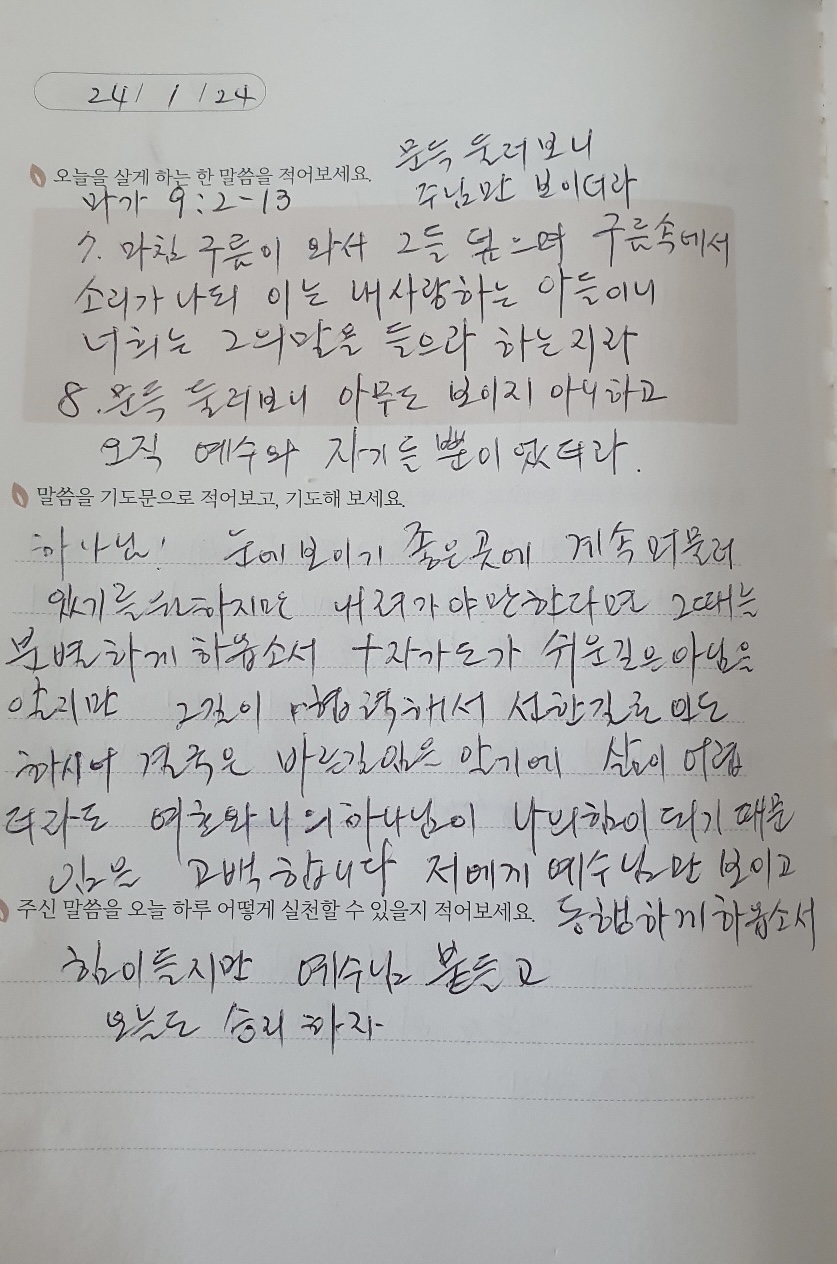 24/ 1 / 24
문득 둘러보니
오늘을 살게 하는 한 말씀을 적어보세요.
주님만 보이더라
마가 9:2-13
7. 마침 구름이 와서 그들 덮으며 구름속에서
소리가 나되 이는 내사랑하는 아들이니
너희는 그의말을 들으라 하는지라
8. 문득 둘러보니 아무도 보이지 아니하고
오직 예수와 자기들뿐이었더라.
말씀을 기도문으로 적어보고, 기도해 보세요.
하나님! 눈에보이기 좋은곳에 계속 머물러
있기를원하지만 내려가야만한다면 그때를
분별하게 하옵소서 十자가도가 쉬운길은아님을
알지만 그길이 협력해서 선한길로인도
하시어 결국은 바른길임을 알기에 삶이 어렵
더라도 여호와 나의하나님이 나의힘이 되기 때문
임을 고백합니다 저에게 예수님만 보이고
주신 말씀을 오늘 하루 어떻게 실천할 수 있을지 적어보세요. 동행하게하옵소서
힘이들지만 예수님 붙들고
오늘도 승리하자